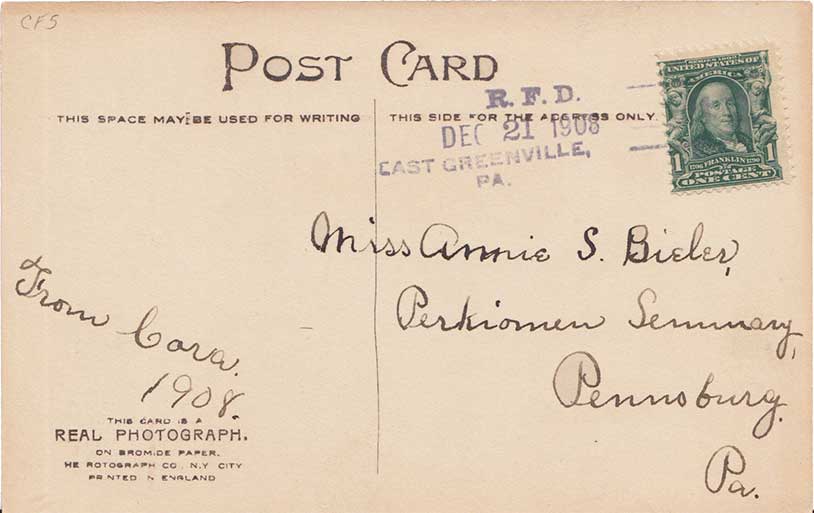 CFS
POST CARD
THIS SPACE MAY BE USED FOR WRITING
THIS SIDE FOR THE ADDRESS ONLY.
R. F. D.
DEC 21 1908
EAST GREENVILLE,
PA.
SERIES 1902
UNITED STATES OF
AMERICA
1706 FRANKLIN 1790
1 POSTAGE 1
ONE CENT
Miss Annie S. Bieler,
Perkiomen Seminary,
Pennsburg.
Pa.
From Cora.
1908.
THIS CARD IS A
REAL PHOTOGRAPH.
ON BROMIDE PAPER.
HE ROTOGRAPH CO., N.Y. CITY
PRINTED IN ENGLAND